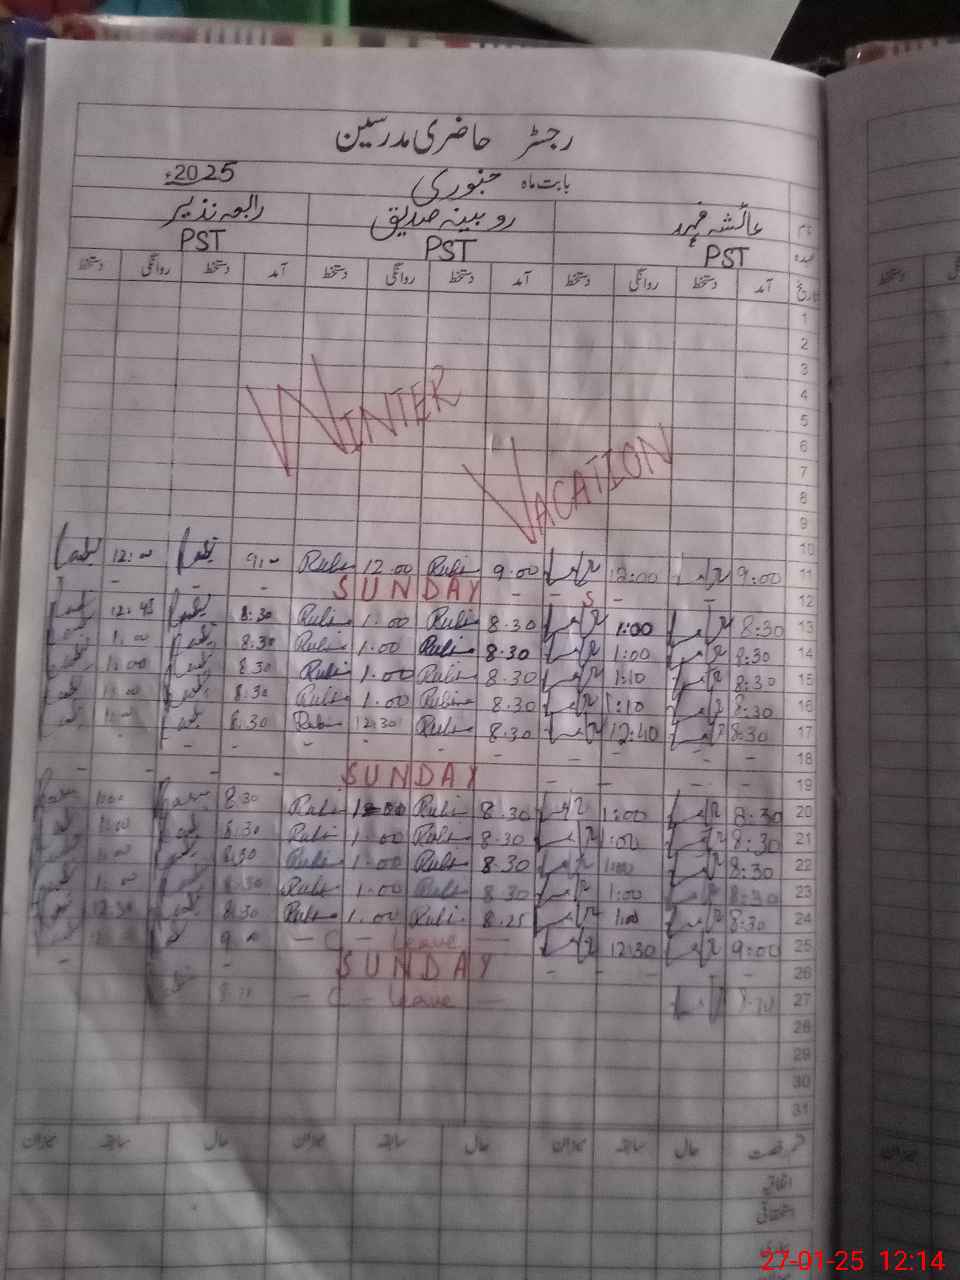 رجسٹر حاضری مدرسین
بابت ماہ جنوری 2025ء
نام عائشہ فہد روبینہ صدیق رابعہ نذیر
عہدہ PST PST PST
تاریخ آمد دستخط روانگی دستخط آمد دستخط روانگی دستخط آمد دستخط روانگی دستخط
1
2
3
4
5
6
7
8
9
WINTER VACATION
10
11 9:00 12:00 9.00 Rubi 12.00 Rubi 9:00 12:00
12 - S - - SUNDAY - - -
13 8:30 1:00 8.30 Rubi 1.00 Rubi 8.30 12:45
14 8:30 1:00 8.30 Rubi 1.00 Rubi 8.30 1:00
15 8:30 1:10 8.30 Rubi 1.00 Rubi 8.30 1:00
16 8:30 1:10 8.30 Rubi 1.00 Rubi 8.30 1:00
17 8:30 12:40 8.30 Rubi 12:30 Rubi 8.30 1:00
18 - - - - - - - -
19 - - - - SUNDAY - - - -
20 8:30 1:00 8.30 Rubi 1.00 Rubi 8.30 1:00
21 8:30 1:00 8.30 Rubi 1.00 Rubi 8.30 1:00
22 8:30 1:00 8.30 Rubi 1.00 Rubi 8.30 1:00
23 8:30 1:00 8.30 Rubi 1.00 Rubi 8.30 1:00
24 8:30 1:00 8.25 Rubi 1.00 Rubi 8.30 12:30
25 9:00 12:30 — C - leave — 9:00
26 - - - - SUNDAY - -
27 — C - leave —
28
29
30
31
قسم رخصت حال سابقہ میزان حال سابقہ میزان حال سابقہ میزان
اتفاقیہ
استحقاقی
27-01-25 12:14